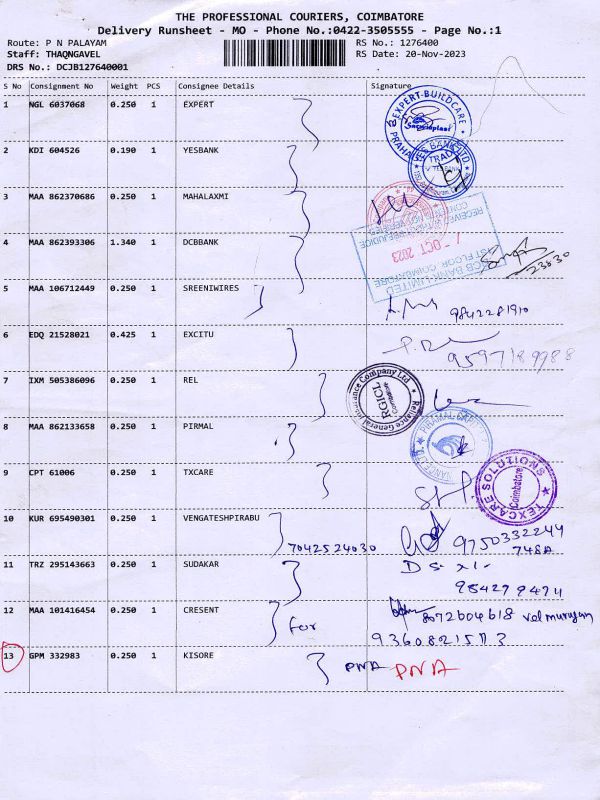 THE PROFESSIONAL COURIERS, COIMBATORE
Delivery Runsheet - MO - Phone No.:0422-3505555 - Page No.:1
Route: P N PALAYAM RS No.: 1276400
Staff: THAQNGAVEL RS Date: 20-Nov-2023
DRS No.: DCJB127640001
S No Consignment No Weight PCS Consignee Details Signature
1 NGL 6037068 0.250 1 EXPERT
EXPERT BUILDCARE
2 KDI 604526 0.190 1 YESBANK
YES BANK LTD
TRADE
YES BANK
3 MAA 862370686 0.250 1 MAHALAXMI
4 MAA 862393306 1.340 1 DCBBANK
DCB BANK LIMITED
1ST FLOOR, COIMBATORE
OCT 2023
RECEIVED WITHOUT PREJUDICE
CONTENTS NOT VERIFIED
23830
5 MAA 106712449 0.250 1 SREENIWIRES
9842281910
6 EDQ 21528021 0.425 1 EXCITU
9597189988
7 IXM 505386096 0.250 1 REL
Reliance General Insurance Company Ltd
RGICL
Coimbatore
8 MAA 862133658 0.250 1 PIRMAL
PIRAMAL CAPITAL
9 CPT 61006 0.250 1 TXCARE
TEXCARE SOLUTIONS
Coimbatore
10 KUR 695490301 0.250 1 VENGATESHPIRABU
7042524030 9750332244
748A
11 TRZ 295143663 0.250 1 SUDAKAR
984279474
12 MAA 101416454 0.250 1 CRESENT
for 8072604618 velmurugan
9360821573
13 GPM 332983 0.250 1 KISORE PNA PNA